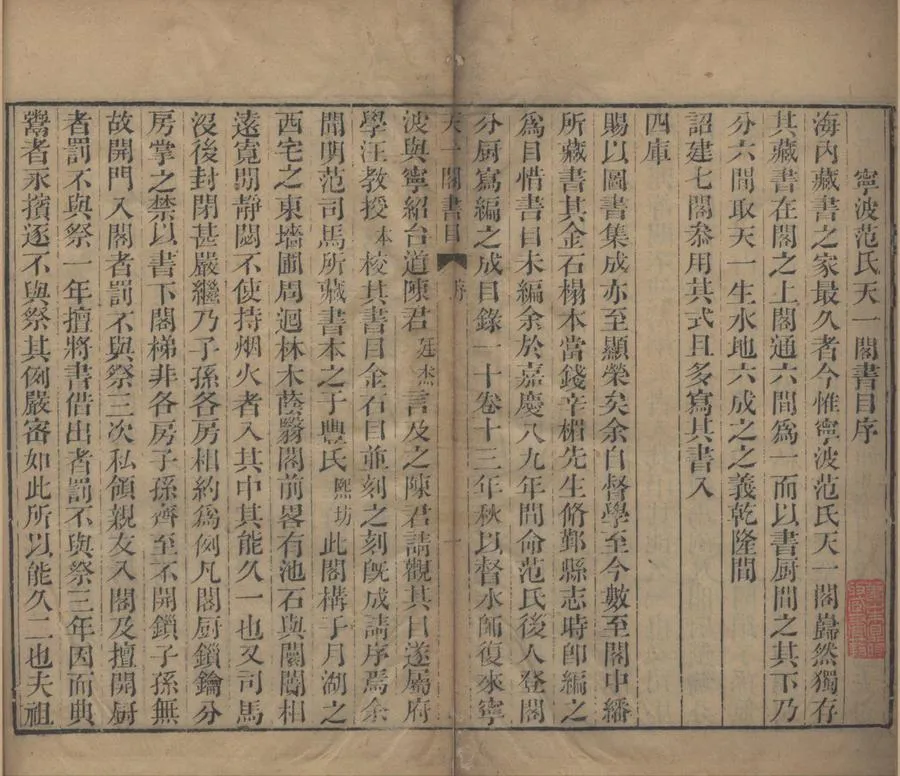 寧波范氏天一閣書目序
海內藏書之家最久者今惟寧波范氏天一閣巋然獨存
其藏書在閣之上閣通六間爲一而以書厨間之其下乃
分六間取天一生水地六成之之義乾隆間
詔建七閣叅用其式且多寫其書入
四庫
賜以圖書集成亦至顯榮矣余自督學至今數至閣中繙
所藏書其金石榻本當錢辛楣先生脩鄞縣志時卽編之
爲目惜書目未編余於嘉慶八九年間命范氏後人登閣
分厨寫編之成目錄一十卷十三年秋以督水師復來寧
天一閣書目
一
波與寧紹台道陳君廷杰言及之陳君請觀其目遂屬府
學汪教授本校其書目金石目並刻之刻旣成請序焉余
聞明范司馬所藏書本之于豐氏熙坊此閣構于月湖之
西宅之東墻圃周迴林木蔭翳閣前畧有池石與闤闠相
遠寬閒靜閟不使持烟火者入其中其能久一也又司馬
沒後封閉甚嚴繼乃子孫各房相約爲例凡閣厨鎖鑰分
房掌之禁以書下閣梯非各房子孫齊至不開鎖子孫無
故開門入閣者罰不與祭三次私領親友入閣及擅開厨
者罰不與祭一年擅將書借出者罰不與祭三年因而典
鬻者永擯逐不與祭其例嚴密如此所以能久二也夫祖